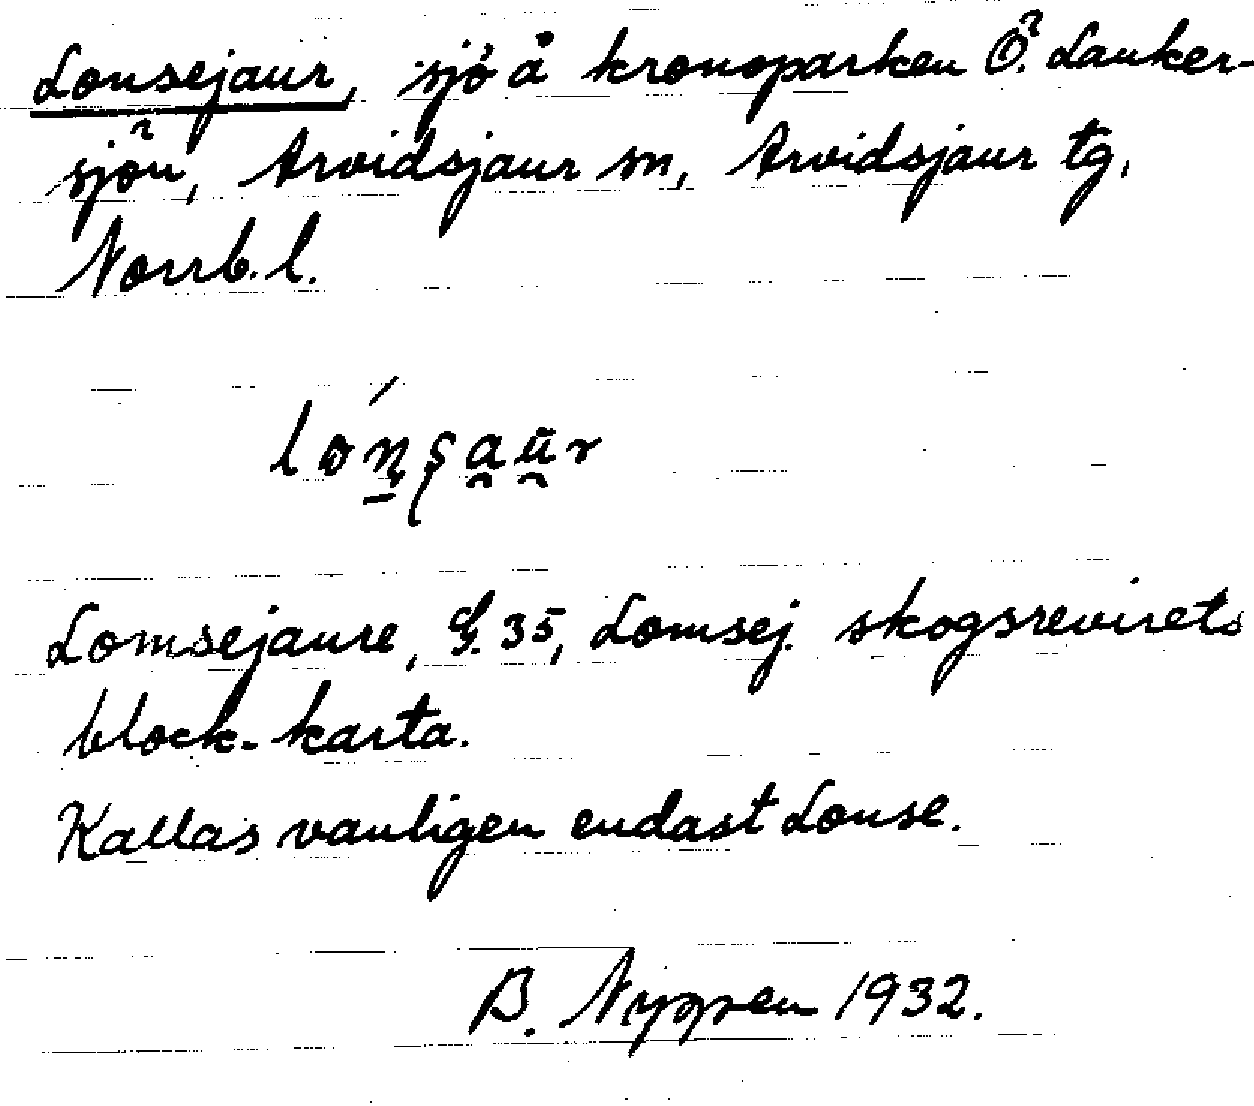 Lonsejaur, sjö å kronoparken Ö. Lauker-
sjön, Arvidsjaur sn, Arvidsjaur tg,
Norrb. l.
Lomsejaure, G. 35, Lomsej. skogsrevirets
block-karta.
Kallas vanligen endast Lonse.
B. 1932.